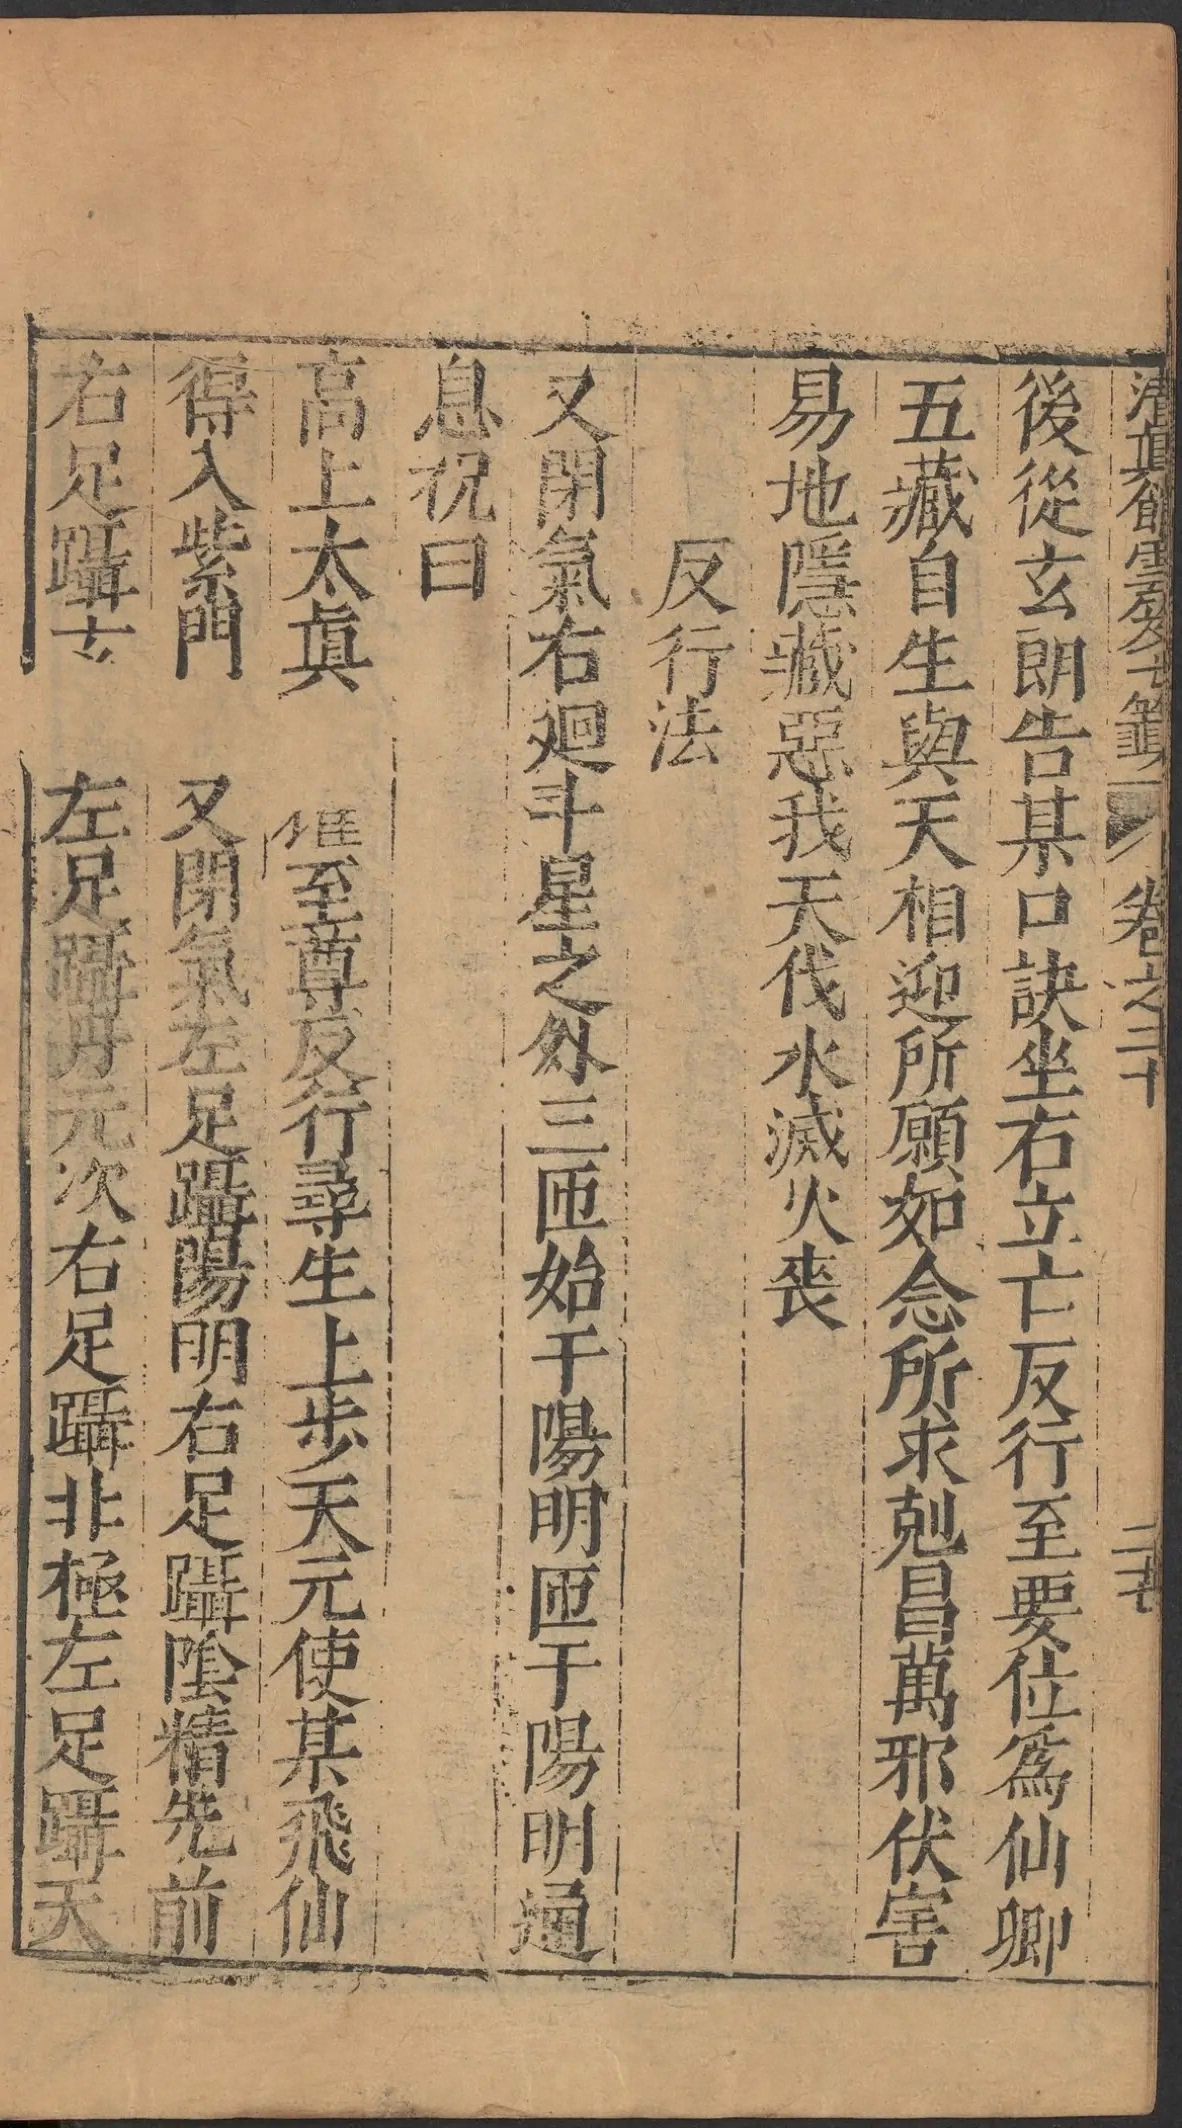 清真館雲笈七籤 卷之二十 二十七
後從玄朗告某口訣坐右立亡反行至要位為仙卿
五藏自生與天相迎所願如念所求剋昌萬邪伏害
易地隱藏惡我天伐水滅火喪
反行法
又閉氣右迴斗星之外三匝始于陽明匝于陽明通
息祝曰
高上太真 惟至尊反行尋生上步天元使某飛仙
得入紫門 又閉氣左足躡陽明右足躡陰精先前
右足躡玄 左足躡丹元次右足躡非極左足躡天